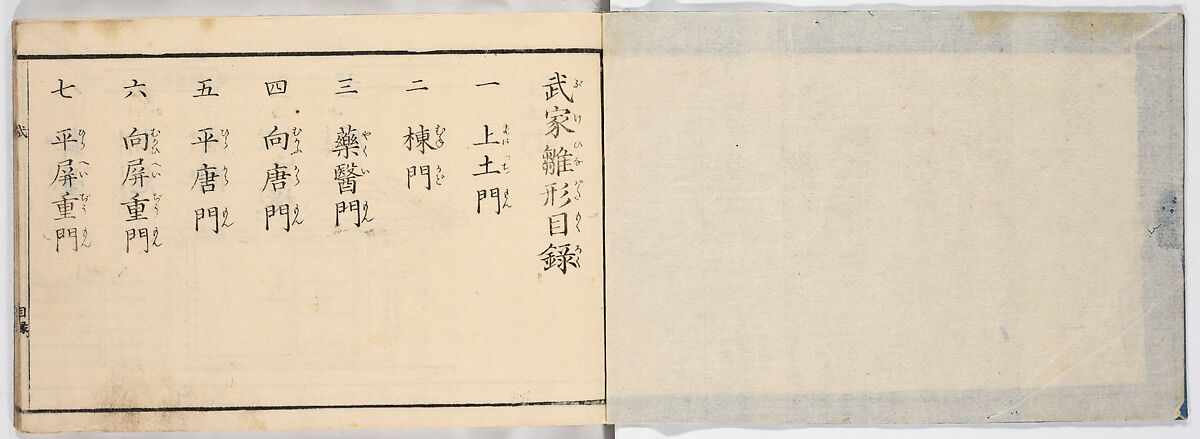 武家雛形目録
一 上土門
二 棟門
三 藥醫門
四 向唐門
五 平唐門
六 向屏重門
七 平屏重門
武
目録